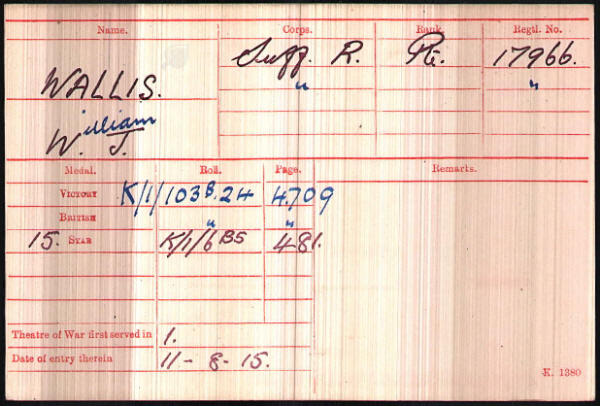 Name. Corps. Rank. Regtl. No.
WALLIS. Suff. R. Pte. 17966.
William J. " "
Medal. Roll. Page. Remarks.
VICTORY K/1/103B.24 4709
BRITISH " "
15. STAR K/1/6 B5 481.
Theatre of War first served in 1.
Date of entry therein 11-8-15.
K. 1380